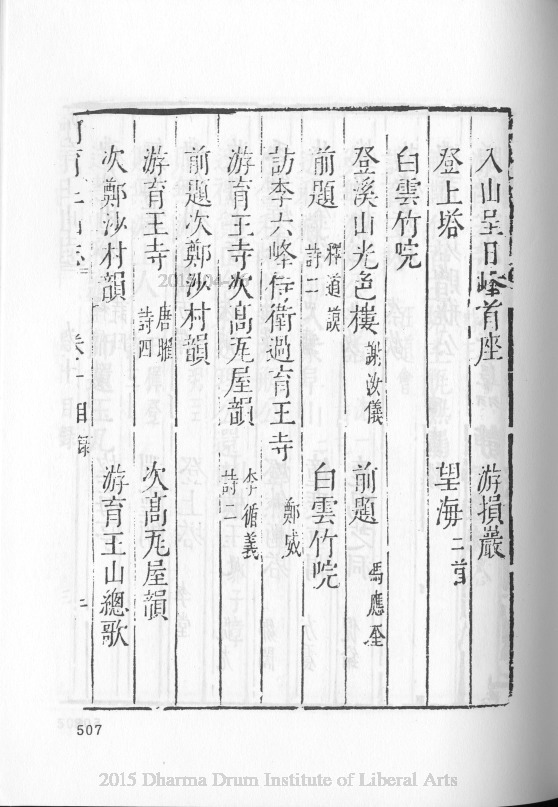 入山呈日峰首座　游損巖
登上塔　望海二首
白雲竹院
登溪山光色樓 謝汝儀　前題 馮應奎
前題 釋道謨 詩二　白雲竹院
訪李六峰侍衛過育王寺 鄭威
游育王寺次高瓦屋韻 李循義 詩二
前題次鄭沙村韻
游育王寺 唐曜 詩四　次高瓦屋韻
次鄭沙村韻　游育王山總歌
育王山志 卷十 目錄
507
2015 Dharma Drum Institute of Liberal Arts